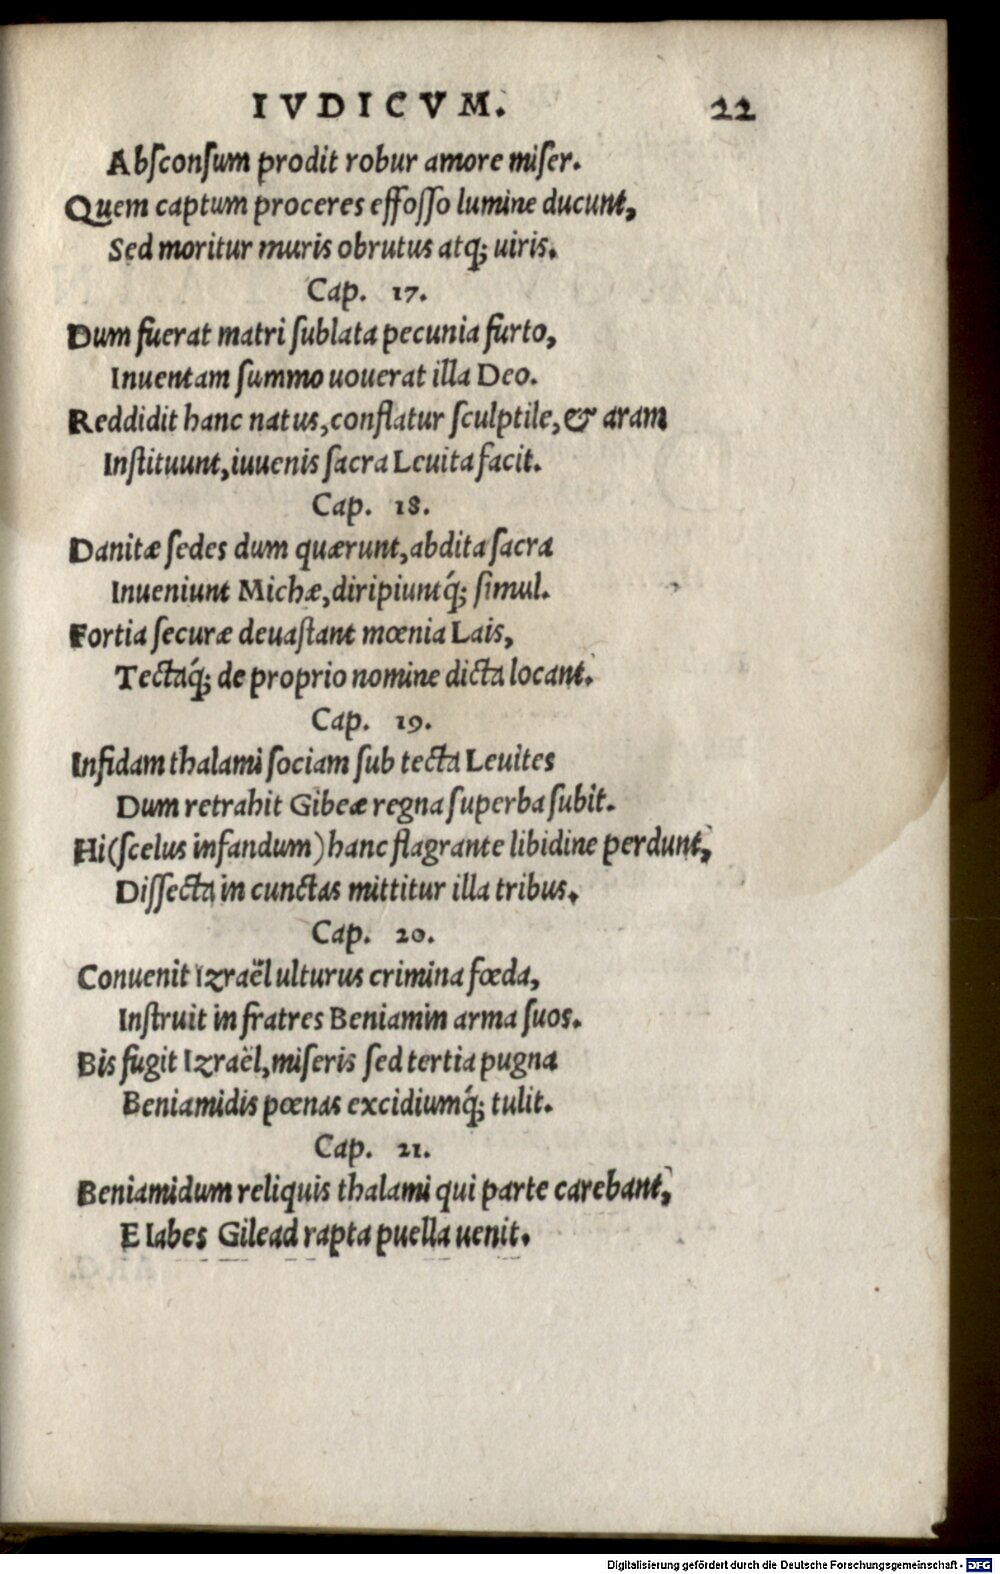 IVDICVM. 22
Abſconſum prodit robur amore miſer.
Quem captum proceres effoſſo lumine ducunt,
Sed moritur muris obrutus atq; uiris.
Cap. 17.
Dum fuerat matri ſublata pecunia furto,
Inuentam ſummo uouerat illa Deo.
Reddidit hanc natus, conflatur ſculptile, & aram
Inſtituunt, iuuenis ſacra Leuita facit.
Cap. 18.
Danitæ ſedes dum quærunt, abdita ſacra
Inueniunt Michæ, diripiuntq́; ſimul.
Fortia ſecuræ deuaſtant mœnia Lais,
Tectaq́; de proprio nomine dicta locant.
Cap. 19.
Infidam thalami ſociam ſub tecta Leuites
Dum retrahit Gibeæ regna ſuperba ſubit.
Hi (ſcelus infandum) hanc flagrante libidine perdunt,
Diſſecta in cunctas mittitur illa tribus.
Cap. 20.
Conuenit Izraël ulturus crimina fœda,
Inſtruit in fratres Beniamin arma ſuos.
Bis fugit Izraël, miſeris ſed tertia pugna
Beniamidis pœnas excidiumq́; tulit.
Cap. 21.
Beniamidum reliquis thalami qui parte carebant,
E Iabes Gilead rapta puella uenit.
Digitalisierung gefördert durch die Deutsche Forschungsgemeinschaft - DFG